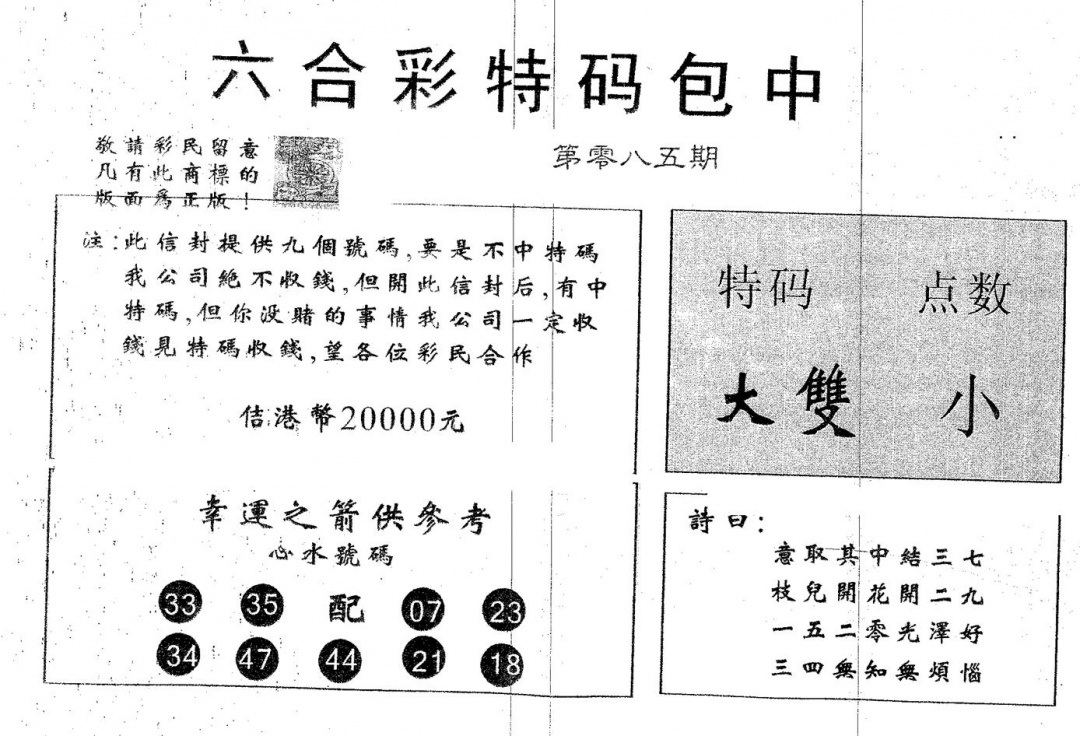 六合彩特码包中
敬請彩民留意
凡有此商標的
版面爲正版！
第零八五期
注：此信封提供九個號碼，要是不中特碼
我公司絶不收錢，但開此信封后，有中
特碼，但你没賭的事情我公司一定收
錢見特碼收錢，望各位彩民合作
佶港幣20000元
特码 点数
大雙 小
幸運之箭供參考
心水號碼
33 35 配 07 23
34 47 44 21 18
詩曰：
意取其中結三七
枝兒開花開二九
一五二零光澤好
三四無知無煩惱